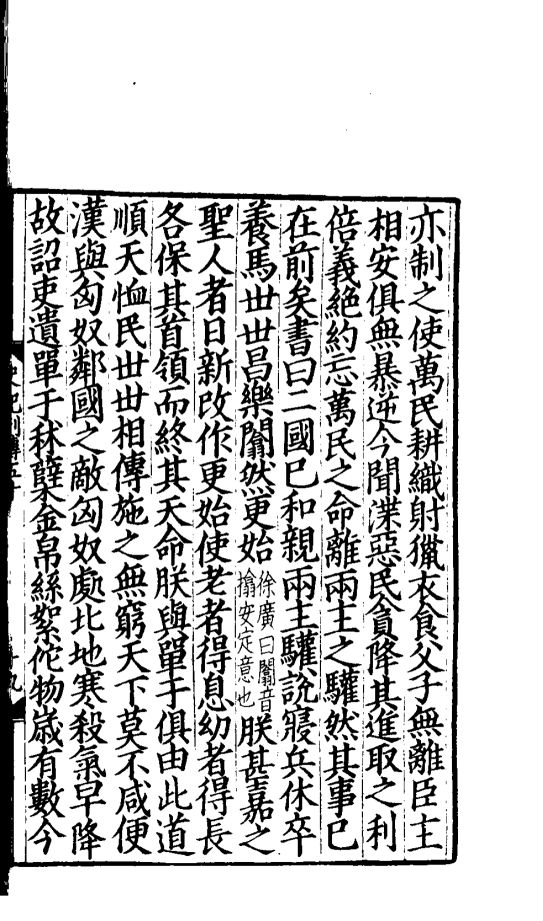 亦制之使萬民耕織射獵衣食父子無離臣主
相安俱無暴逆今聞渫惡民貪降其進取之利
倍義絶約忘萬民之命離兩主之驩然其事已
在前矣書曰二國已和親兩主驩說寢兵休卒
養馬丗丗昌樂闟然更始徐廣曰闟音搨安定意也朕甚嘉之
聖人者日新改作更始使老者得息幼者得長
各保其首領而終其天命朕與單于俱由此道
順天恤民丗丗相傳施之無窮天下莫不咸便
漢與匈奴鄰國之敵匈奴處北地寒殺氣早降
故詔吏遺單于秫糵金帛絲絮佗物歲有數今